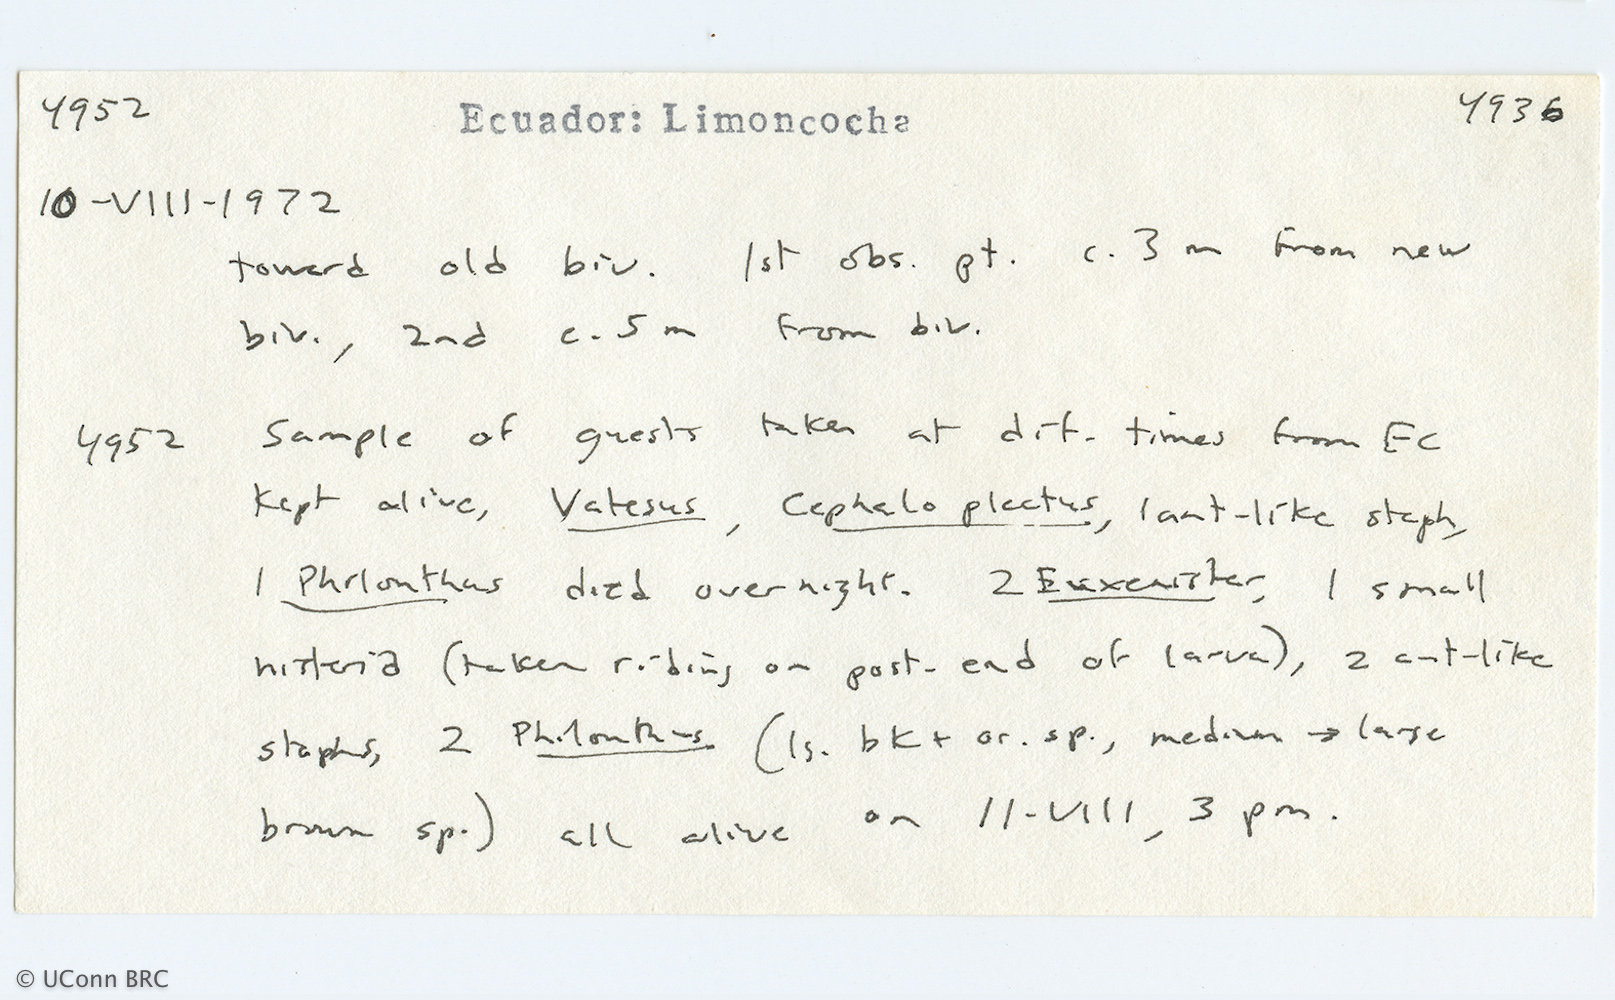 4952 Ecuador: Limoncocha 4936
10-VIII-1972
toward old biv. 1st obs. pt. c. 3 m from new
biv., 2nd c. 5 m from biv.
4952 Sample of guests taken at dif. times from EC
kept alive, Vatesus, Cephaloplectus, 1 ant-like staph,
1 Philonthus died overnight. 2 Euxenister, 1 small
histerid (taken riding on post. end of larva), 2 ant-like
staphs, 2 Philonthus (lg. bk + or. sp., medium → large
brown sp.) all alive on 11-VIII, 3 pm.
© UConn BRC